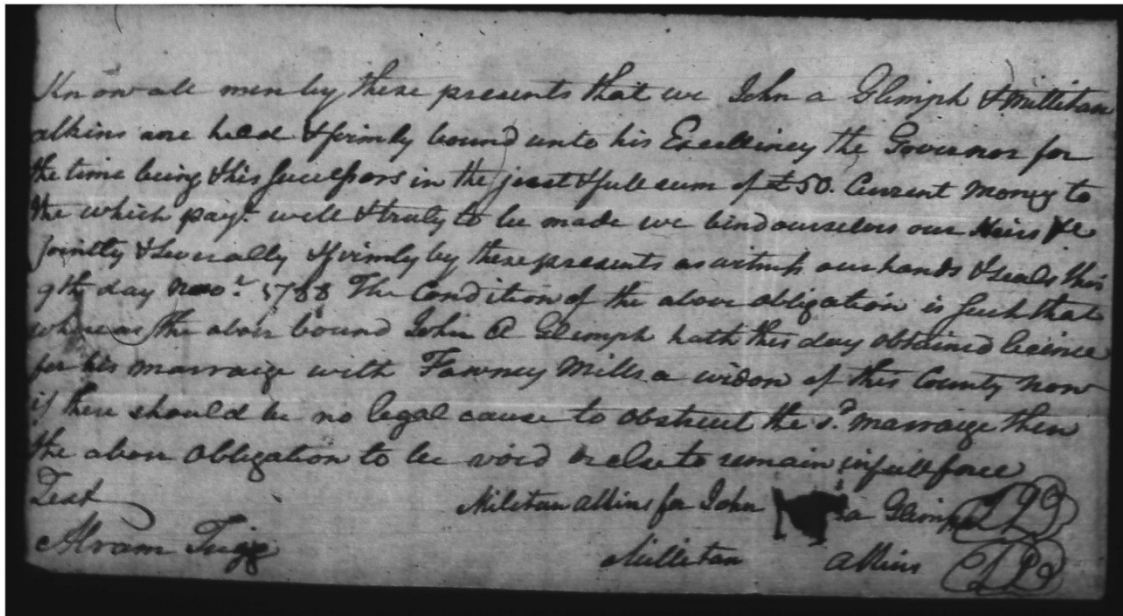 Know all men by these presents that we John a Glimph & Millitan
alkins are held & firmly bound unto his Excellincy the Governor for
the time being & his successors in the just & full sum of £50. Current money to
the which payt. well & truly to be made we bind ourselves our Heirs &c
jointly & severally & firmly by these presents as witness our hands & seals this
9th day Novr. 1788 The Condition of the above obligation is such that
whereas the above bound John A Glimph hath this day obtained licence
for his marraige with Fawney Mills a widow of this County now
if there should be no legal cause to obstruct the sd. marraige then
the above obligation to be void or else to remain in full force
Test Militan alkins for John a Glimph LS
Abram Trigg Millitan alkins LS